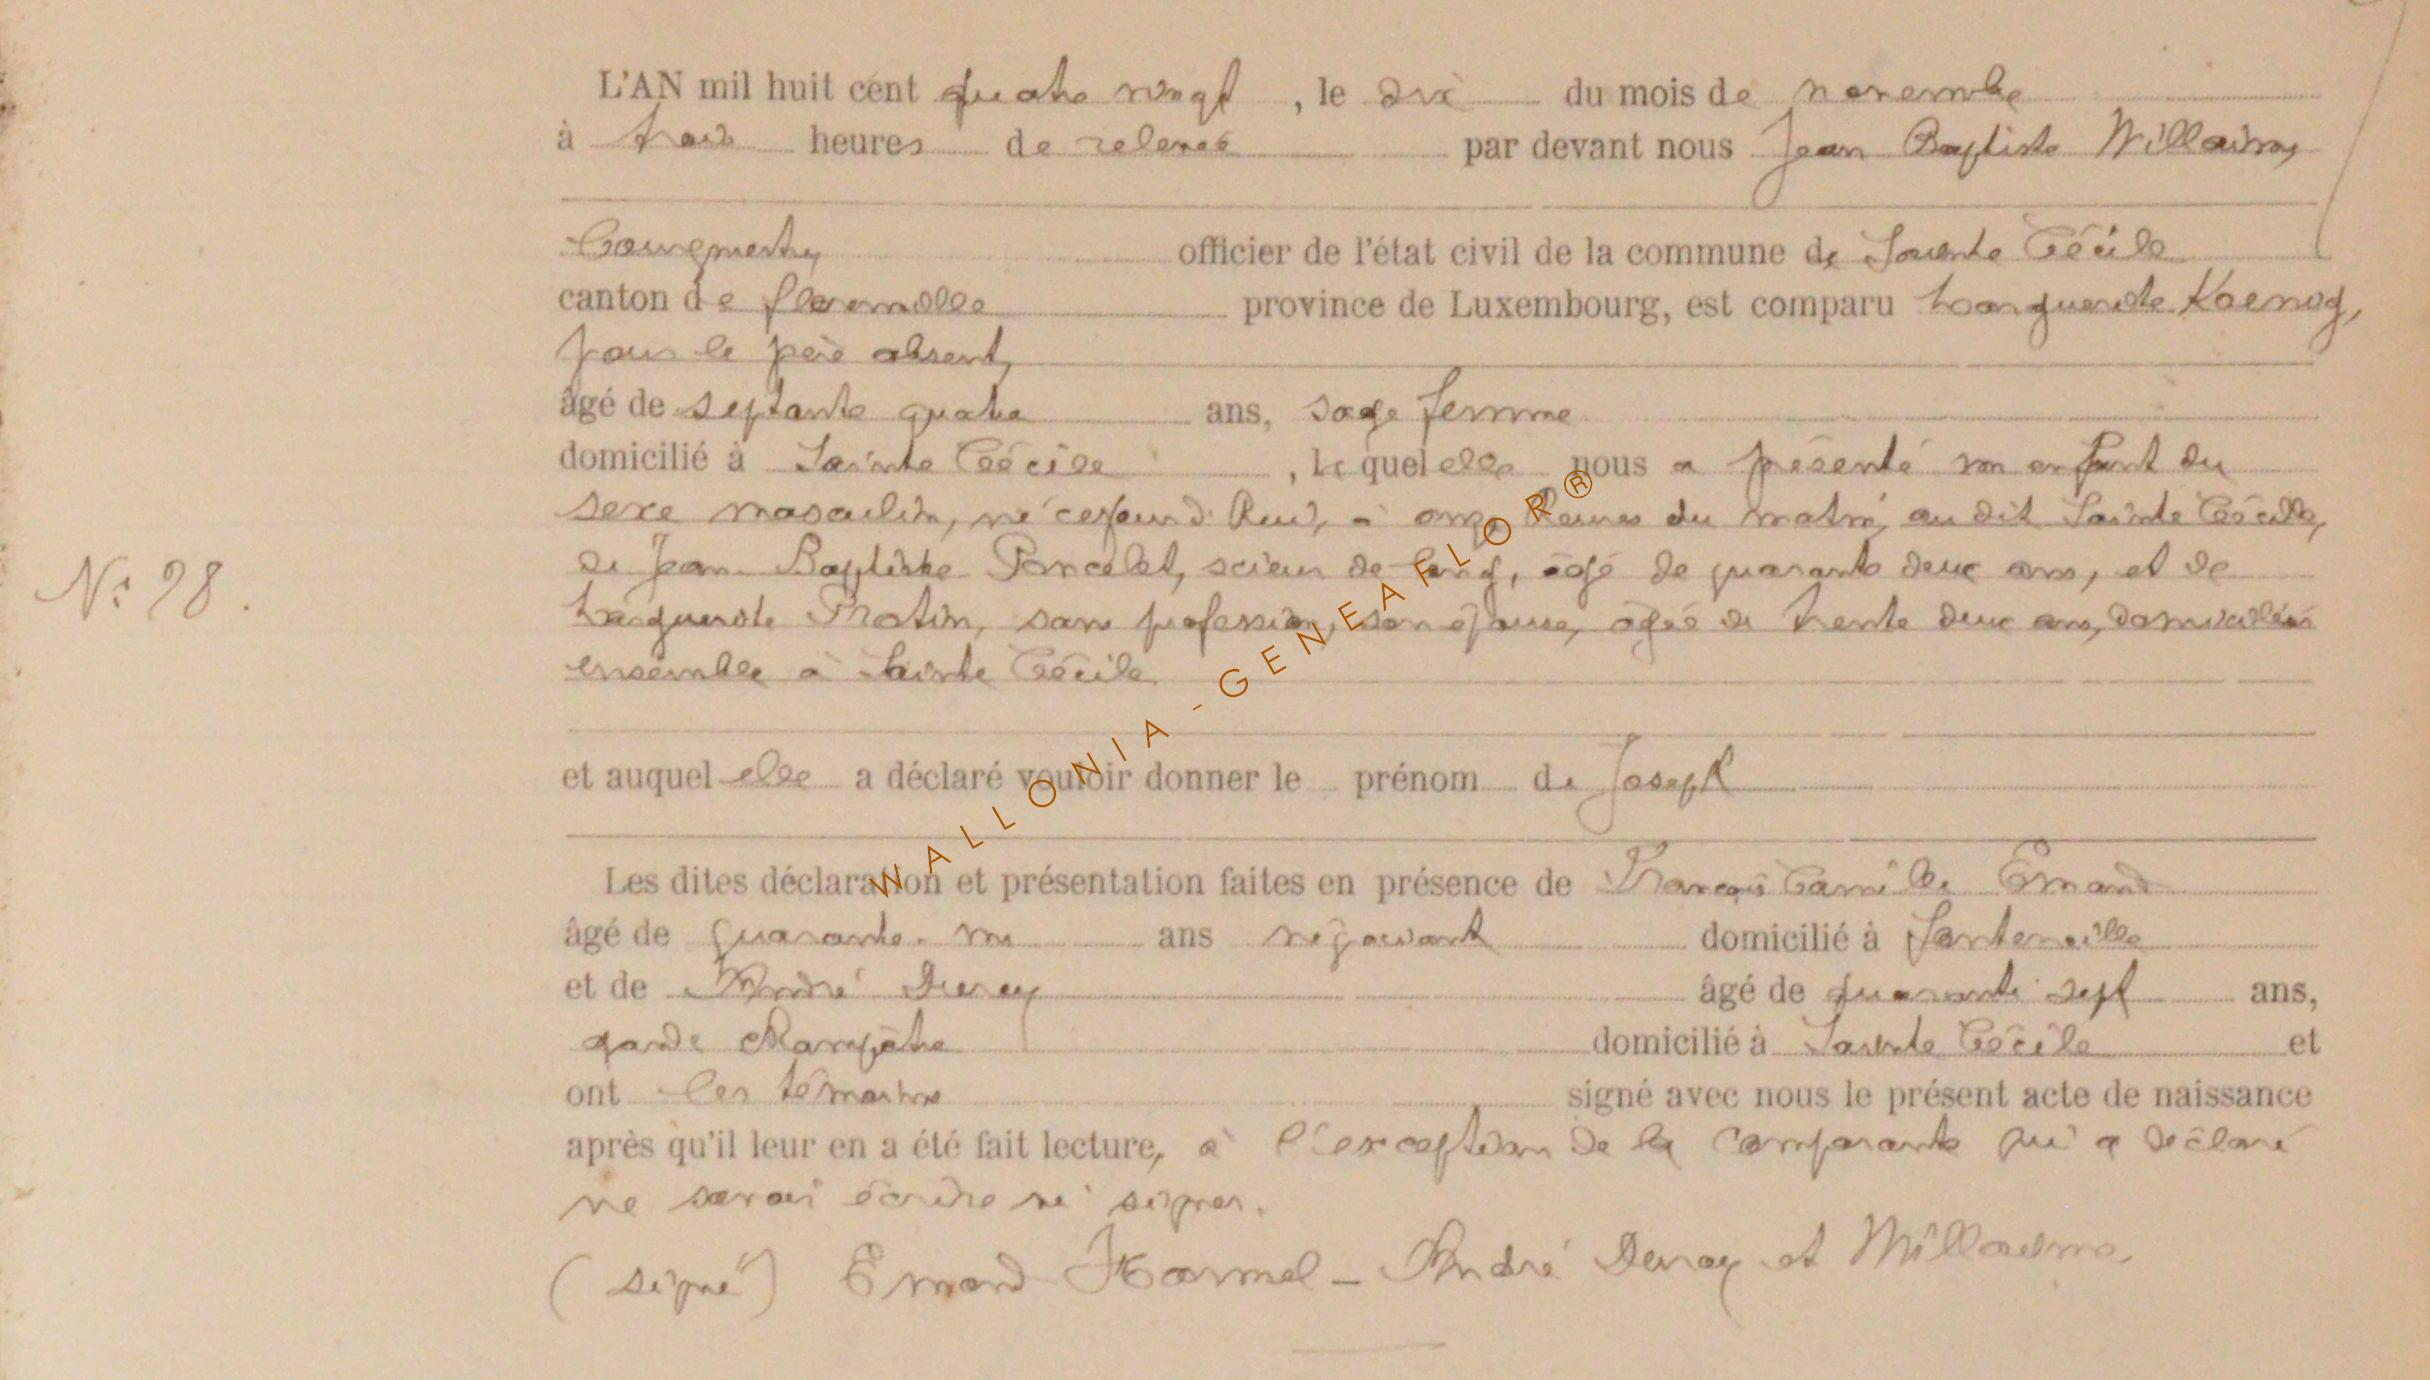 L'AN mil huit cent quatre vingt, le dix du mois de novembre
à trois heures de relevée par devant nous Jean Baptiste Willaime,
Bourgmestre officier de l'état civil de la commune de Sainte Cécile
canton de florenville province de Luxembourg, est comparu Marguerite Koenig,
pour le père absent,
âgé de septante quatre ans, sage femme
domicilié à Sainte Cécile, lequel elle nous a présenté un enfant du
sexe masculin, né cejourd'hui, à onze heures du matin, au dit Sainte Cécile,
de Jean Baptiste Poncelet, scieur de long, âgé de quarante deux ans, et de
N° 28.
Marguerite Protin, sans profession, son épouse, âgée de trente deux ans, domiciliés
ensemble à Sainte Cécile
et auquel elle a déclaré vouloir donner le prénom de Joseph
Les dites déclaration et présentation faites en présence de François Camille Emond
âgé de quarante-un ans négociant domicilié à Fontenoille
et de André âgé de quarante sept ans,
garde champêtre domicilié à Sainte Cécile et
ont les témoins signé avec nous le présent acte de naissance
après qu'il leur en a été fait lecture, à l'exception de la comparante qui a déclaré
ne savoir écrire ni signer.
(signé) Emond Hamel – André et Willaime.
WALLONIA-GENEAFLOR®